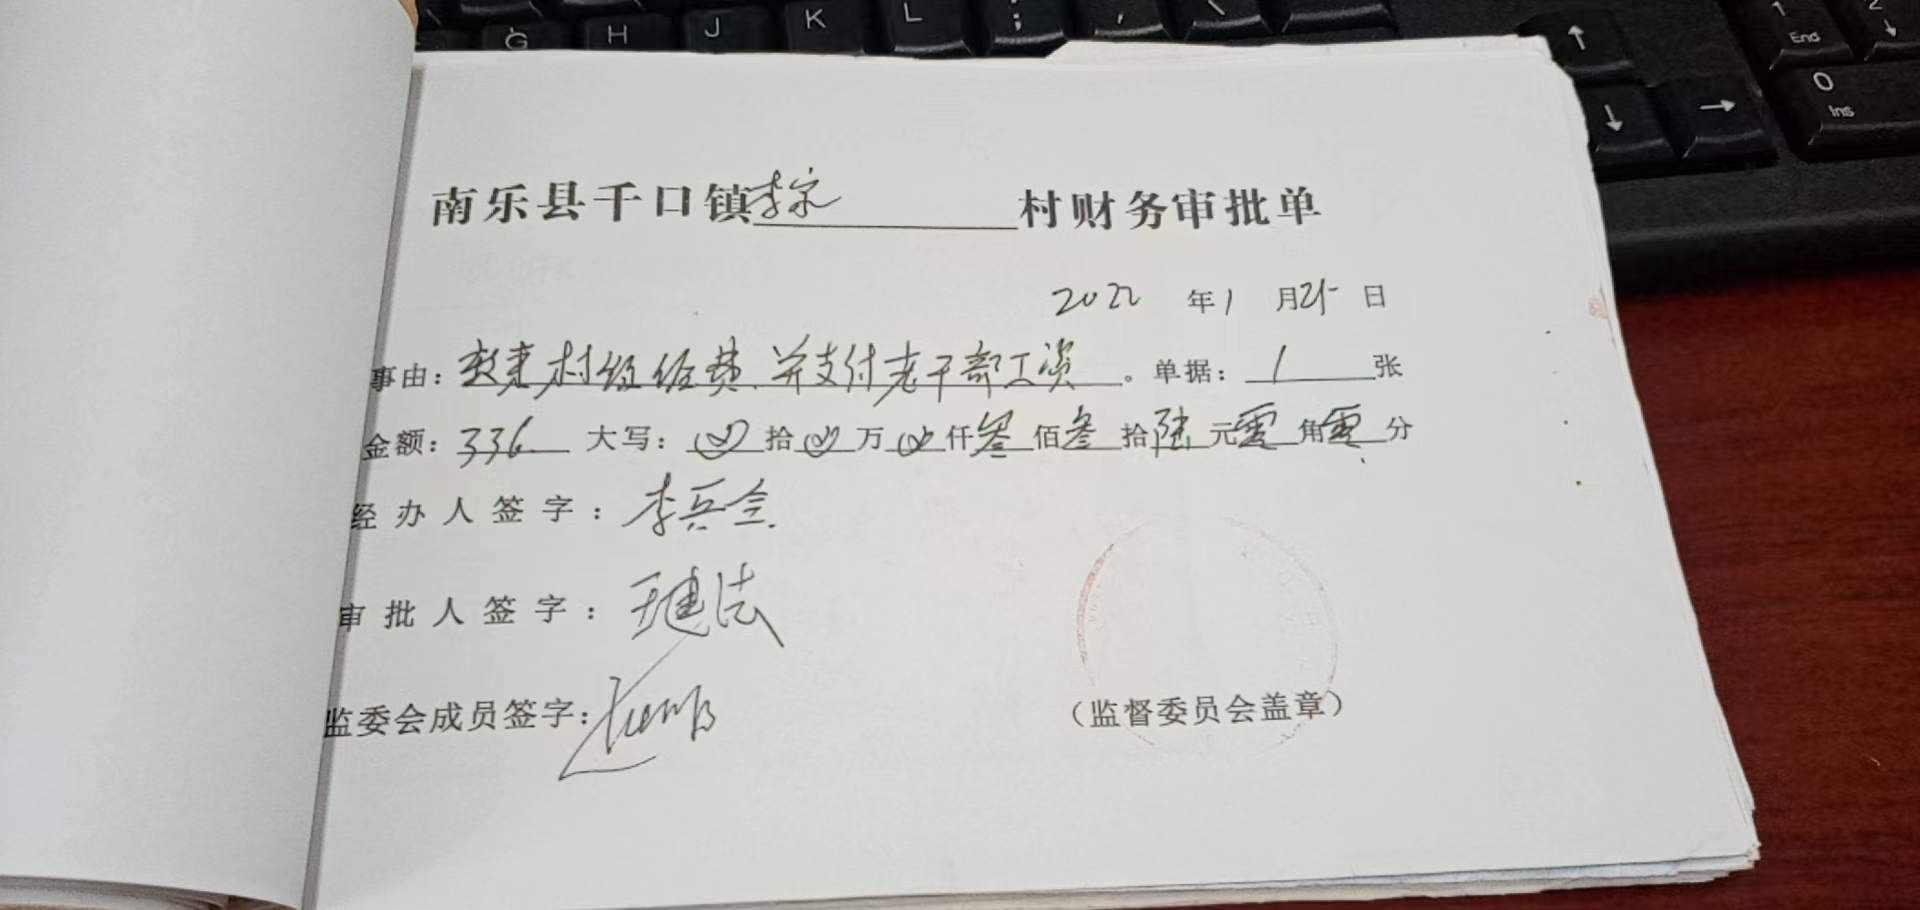 G H J K L ; ,
1 End 2
0 Ins
南乐县千口镇李家村财务审批单
2022 年 1 月 25 日
事由: 村 经费 并支付老干部工资 。单据: 1 张
金额: 336 大写: 拾 万 仟 叁 佰 叁 拾 陆 元 零 角 零 分
经办人签字: 李兵全
审批人签字: 法
监委会成员签字:
(监督委员会盖章)